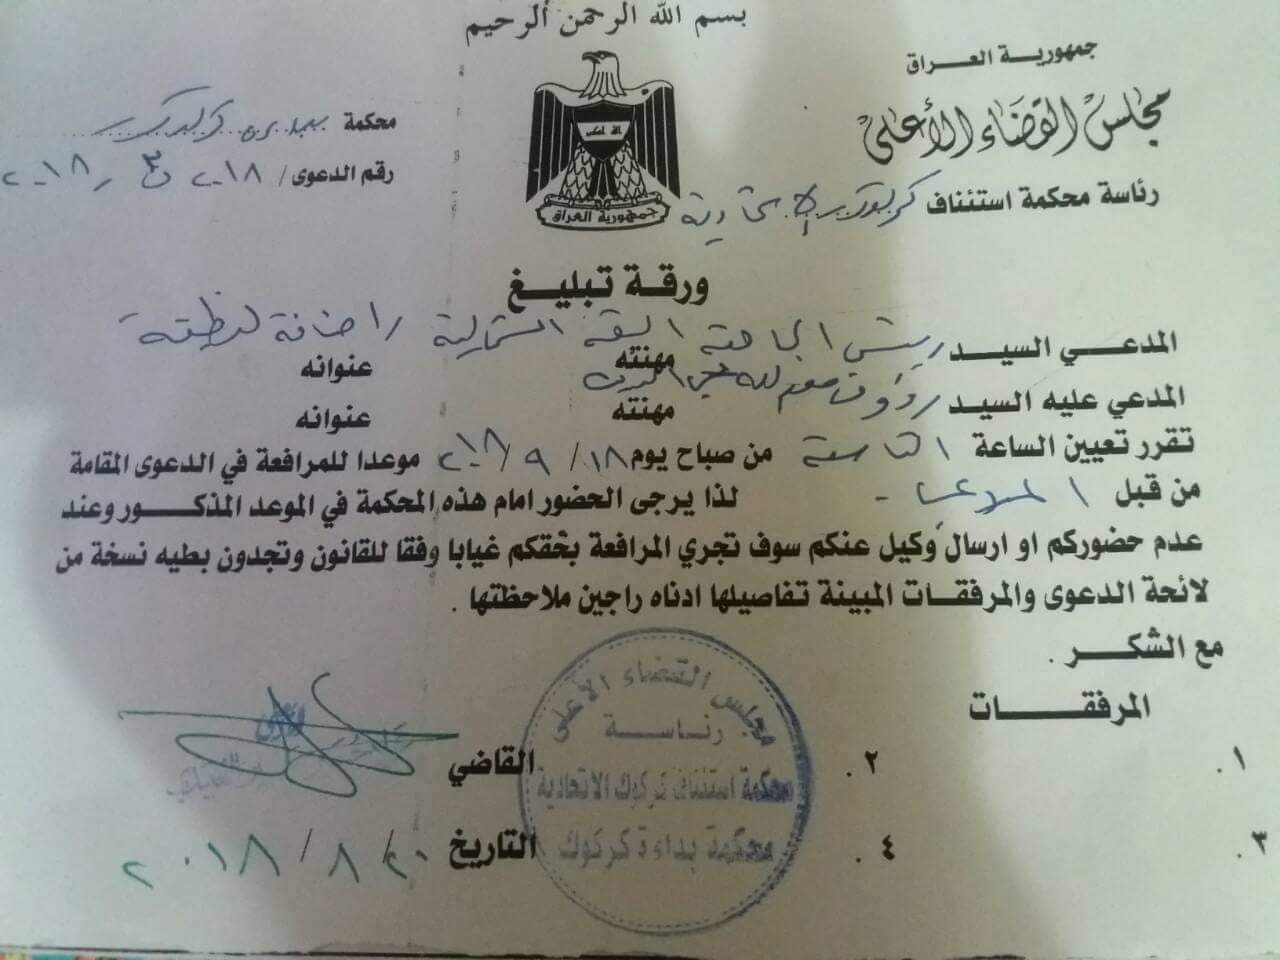 بسم الله الرحمن الرحيم
جمهورية العراق
مجلس القضاء الأعلى
رئاسة محكمة استئناف كركوك الاتحادية
محكمة بداءة كركوك
رقم الدعوى / ٢٠١٨
جمهورية العراق
ورقة تبليغ
المدعي السيد رئيس الجامعة التقنية الشمالية / اضافة لوظيفته
مهنته عنوانه
المدعي عليه السيد رؤوف
مهنته عنوانه
تقرر تعيين الساعة التاسعة من صباح يوم ١٨ / ٩ / ٢٠١٨ موعدا للمرافعة في الدعوى المقامة
من قبل المدعي لذا يرجى الحضور امام هذه المحكمة في الموعد المذكور وعند
عدم حضوركم او ارسال وكيل عنكم سوف تجري المرافعة بحقكم غيابا وفقا للقانون وتجدون بطيه نسخة من
لائحة الدعوى والمرفقات المبينة تفاصيلها ادناه راجين ملاحظتها .
مع الشكر .
المرفقات
١. ٢.
٣. ٤.
القاضي
التاريخ ٢٠ / ٨ / ٢٠١٨
مجلس القضاء الأعلى
رئاسة
محكمة استئناف كركوك الاتحادية
محكمة بداءة كركوك